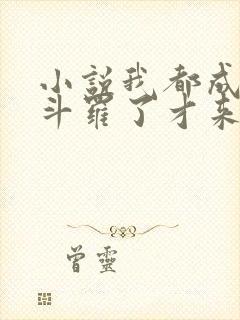 小説我都成
斗羅了才来
曾靈